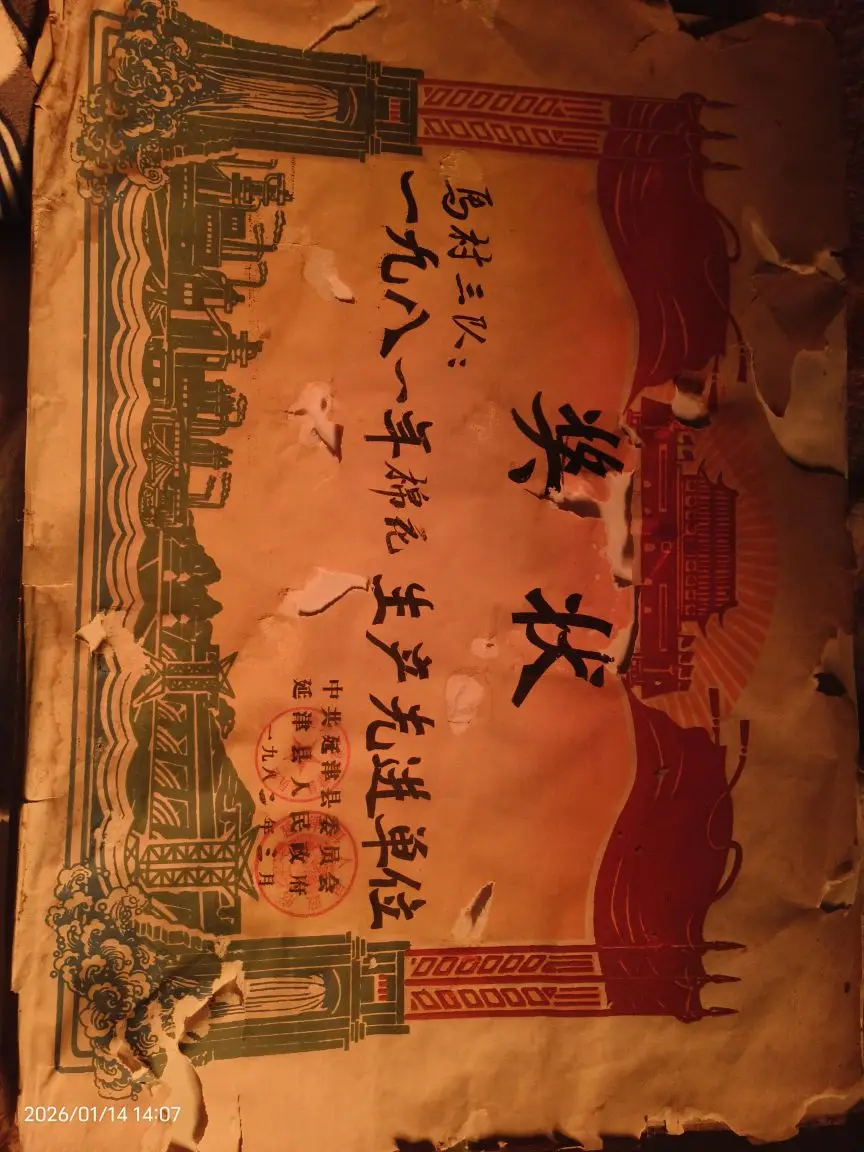 奖状
马村三队：
一九八一年棉花生产先进单位
中共延津县委员会
延津县人民政府
一九八二年二月
2026/01/14 14:07